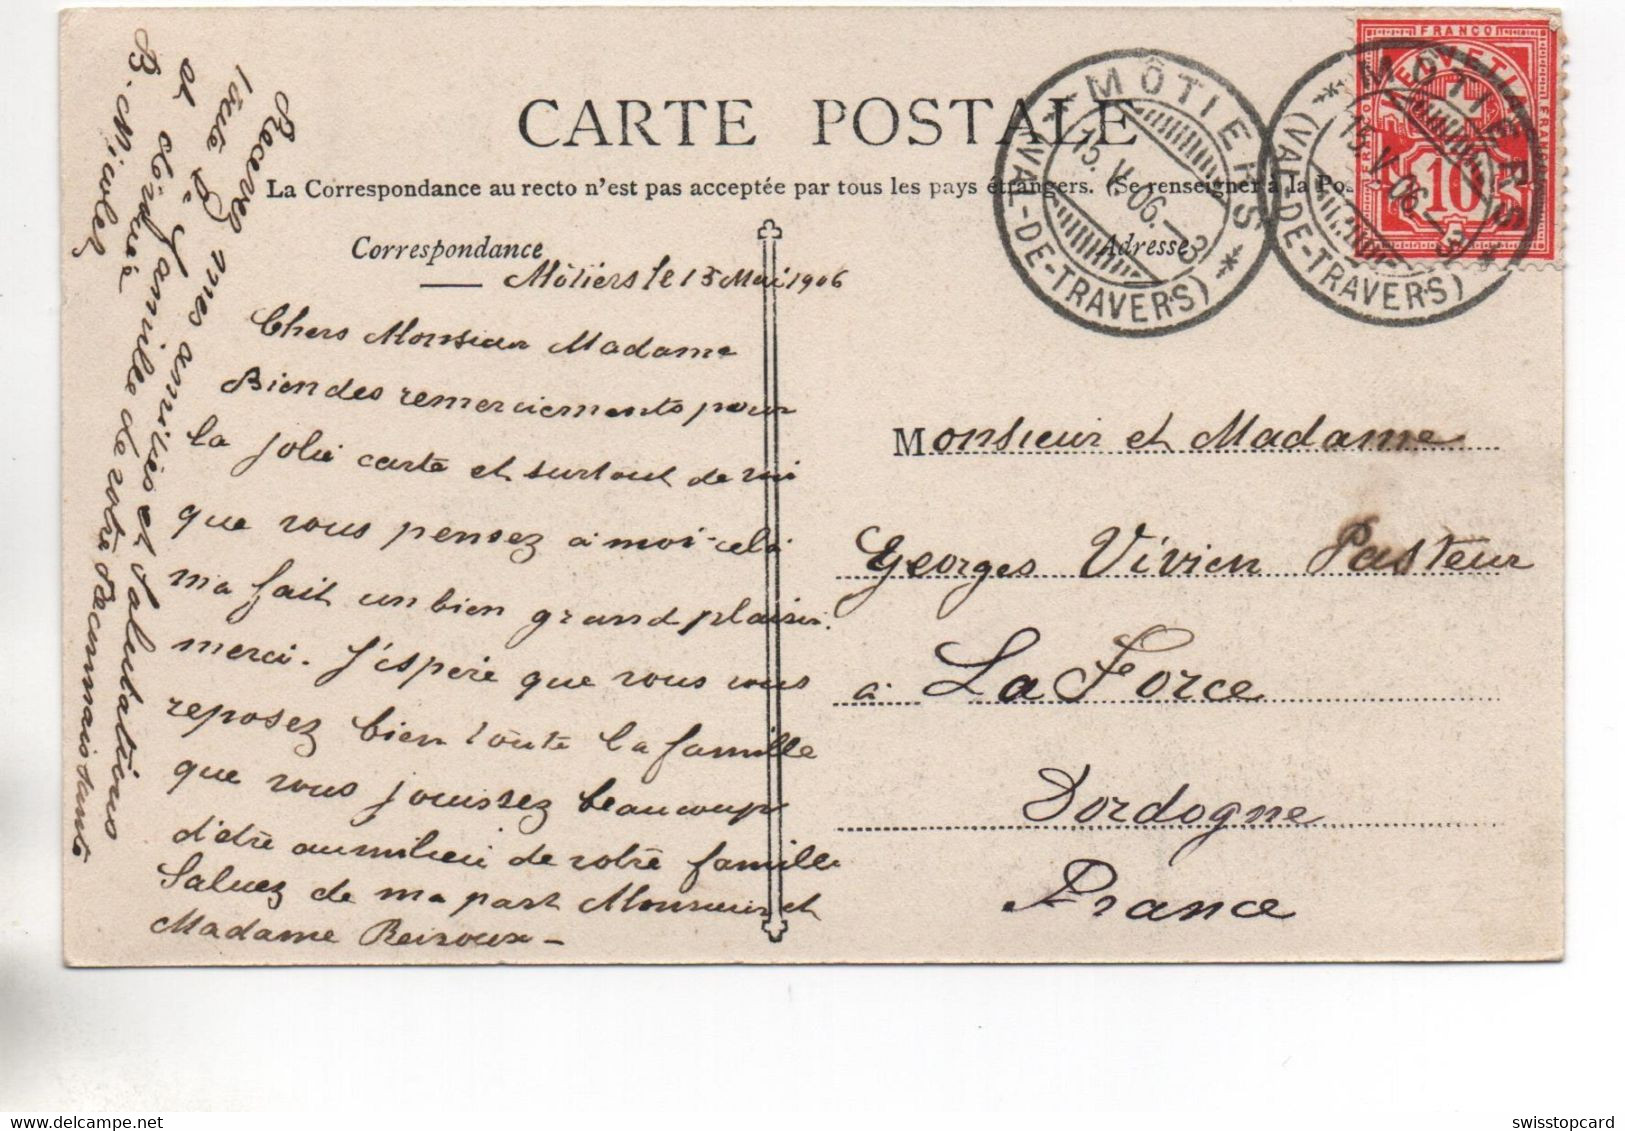 CARTE POSTALE
La Correspondance au recto n'est pas acceptée par tous les pays étrangers. (Se renseigner à la Pos
Correspondance
Adresse
FRANCO
HELVETIA
FRANCO
FRANCO
10
MÔTIERS
15.V.06.–3
(VAL-DE-TRAVERS)
MÔTIERS
15.V.06.–3
(VAL-DE-TRAVERS)
Môtiers le 15 Mai 1906
Chers Monsieur Madame
Bien des remerciements pour
la jolie carte et surtout de
que vous pensez a moi celà
ma fait un bien grand plaisir.
merci. J'espère que vous vous
reposez bien toute la famille
que vous jouissez beaucoup
d'être au milieu de votre famille
Saluez de ma part Monsieur et
Madame
Recevez mes amitiés et salutations
toute la famille de votre
et
B.
Monsieur et Madame
Georges Vivien Pasteur
à La Force
Dordogne
France
swisstopcard